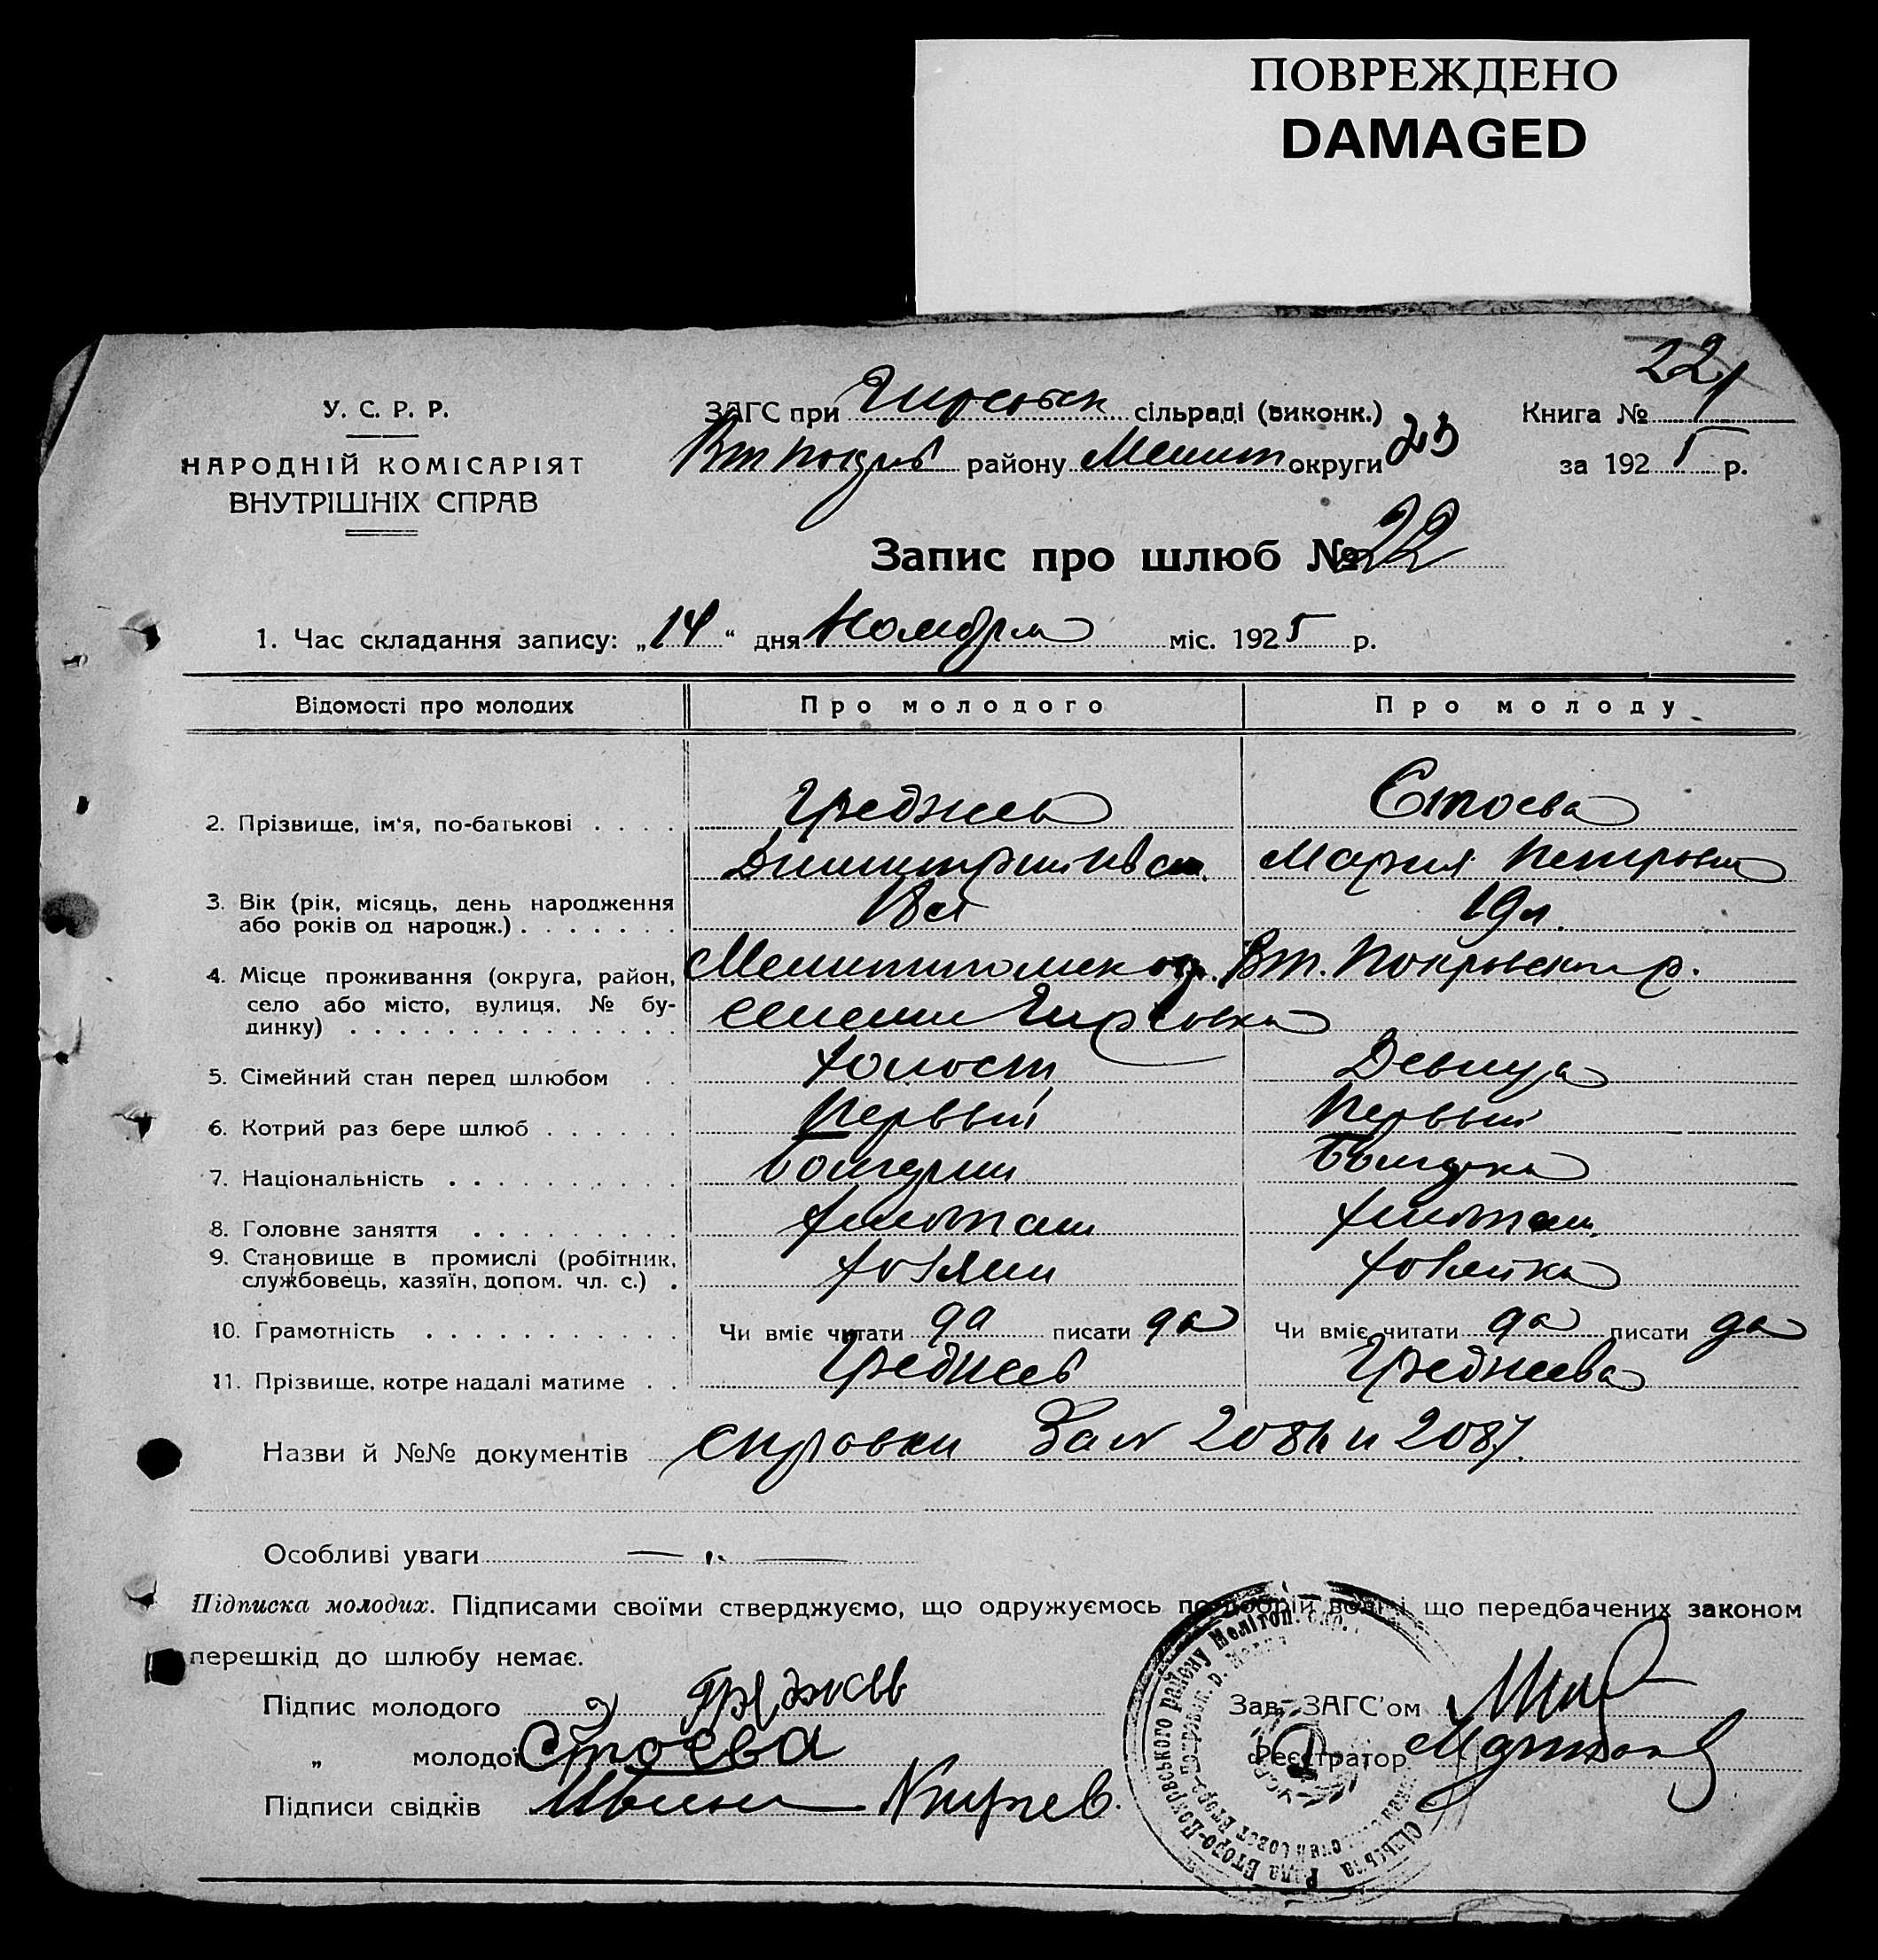 ПОВРЕЖДЕНО
DAMAGED
221
У. С. Р. Р.
НАРОДНІЙ КОМІСАРІЯТ
ВНУТРІШНІХ СПРАВ
ЗАГС при Гирсовск сільраді (виконк.)
Вт Покров района Мелит округи 23
Книга №
за 1925 р.
Запис про шлюб № 22
1. Час складання запису: „14“ дня Ноября міс. 1925 р.
Відомості про молодих Про молодого Про молоду
2. Прізвище, ім'я, по-батькові . . . . Греджев Стоева
Димитрий Иван. Мария Петровна
3. Вік (рік, місяць, день народження 18 л 19 л.
або років од народж.) . . . . . . .
4. Місце проживання (округа, район, Мелитопольск окр. Вт. Покровский р.
село або місто, вулиця, № бу- селении Гирсовка
динку) . . . . . . . . . . . . .
5. Сімейний стан перед шлюбом . . Холост Девица
6. Котрий раз бере шлюб . . . . . . Первый Первый
7. Національність . . . . . . . . . . Болгарин Болгарка
8. Головне заняття . . . . . . . . . хлебопаш хлебопаш.
9. Становище в промислі (робітник,
службовець, хазяїн, допом. чл. с.) . хозяин хозяйка
10. Грамотність . . . . . . . . . . . Чи вміє читати да писати да Чи вміє читати да писати да
11. Прізвище, котре надалі матиме . . Греджев Греджева
Назви й №№ документів справки За № 2086 и 2087.
Особливі уваги — „ —
Підписка молодих. Підписами своїми стверджуємо, що одружуємось по добрій волі і що передбачених законом
перешкід до шлюбу немає.
Підпис молодого Греджев
Зав. ЗАГС'ом
„ молодої Стоева
Реєстратор
Підписи свідків Киряев.
Рада Второ-Покровського району Мелітоп. окр.
Сільська